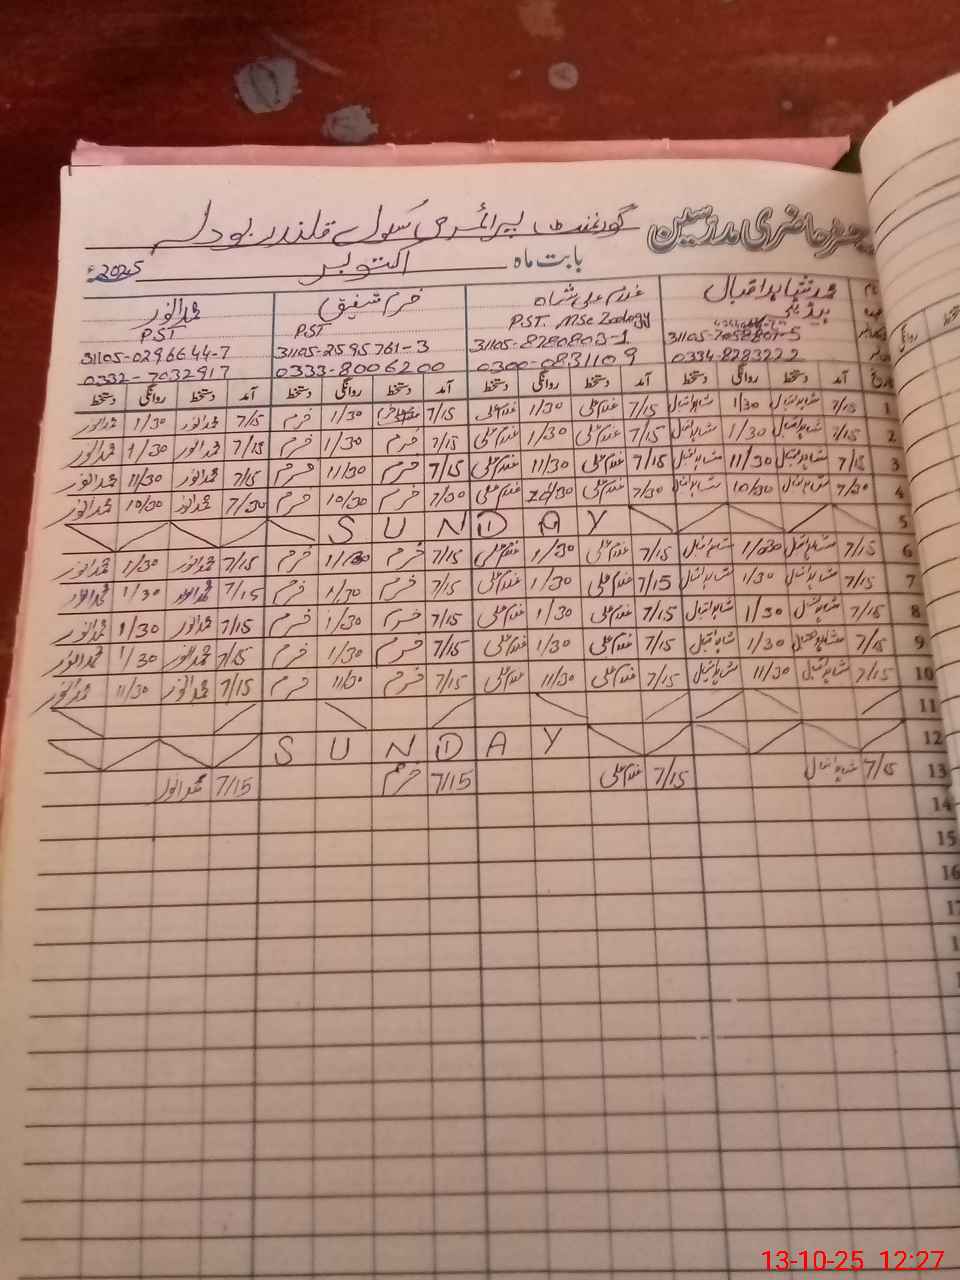 رجسٹر حاضری مدرسین گورنمنٹ پرائمری سکول قلندر بودلہ
بابت ماہ اکتوبر 2025ء
محمد شاہد اقبال غلام علی شاہ خرم شفیق محمد انور
ہیڈ ٹیچر PST. MSc Zoology PST PST
31105-8280803-1 31105-2595761-3 31105-0296644-7
0334-8283222 0300-0831109 0333-8006200 0332-7032917
تاریخ آمد دستخط روانگی دستخط آمد دستخط روانگی دستخط آمد دستخط روانگی دستخط آمد دستخط روانگی دستخط
1 7/15 شاہد اقبال 1/30 شاہد اقبال 7/15 غلام علی 1/30 غلام علی 7/15 خرم 1/30 خرم 7/15 محمد انور 1/30 محمد انور
2 7/15 شاہد اقبال 1/30 شاہد اقبال 7/15 غلام علی 1/30 غلام علی 7/15 خرم 1/30 خرم 7/15 محمد انور 1/30 محمد انور
3 7/15 شاہد اقبال 11/30 شاہد اقبال 7/15 غلام علی 11/30 غلام علی 7/15 خرم 11/30 خرم 7/15 محمد انور 11/30 محمد انور
4 7/30 شاہد اقبال 10/30 شاہد اقبال 7/30 غلام علی 10/30 غلام علی 7/30 خرم 10/30 خرم 7/30 محمد انور 10/30 محمد انور
5 SUNDAY
6 7/15 شاہد اقبال 1/30 شاہد اقبال 7/15 غلام علی 1/30 غلام علی 7/15 خرم 1/30 خرم 7/15 محمد انور 1/30 محمد انور
7 7/15 شاہد اقبال 1/30 شاہد اقبال 7/15 غلام علی 1/30 غلام علی 7/15 خرم 1/30 خرم 7/15 محمد انور 1/30 محمد انور
8 7/15 شاہد اقبال 1/30 شاہد اقبال 7/15 غلام علی 1/30 غلام علی 7/15 خرم 1/30 خرم 7/15 محمد انور 1/30 محمد انور
9 7/15 شاہد اقبال 1/30 شاہد اقبال 7/15 غلام علی 1/30 غلام علی 7/15 خرم 1/30 خرم 7/15 محمد انور 1/30 محمد انور
10 7/15 شاہد اقبال 11/30 شاہد اقبال 7/15 غلام علی 11/30 غلام علی 7/15 خرم 11/30 خرم 7/15 محمد انور 11/30 محمد انور
11
12 SUNDAY
13 7/15 شاہد اقبال 7/15 غلام علی 7/15 خرم 7/15 محمد انور
14
15
16
13-10-25 12:27